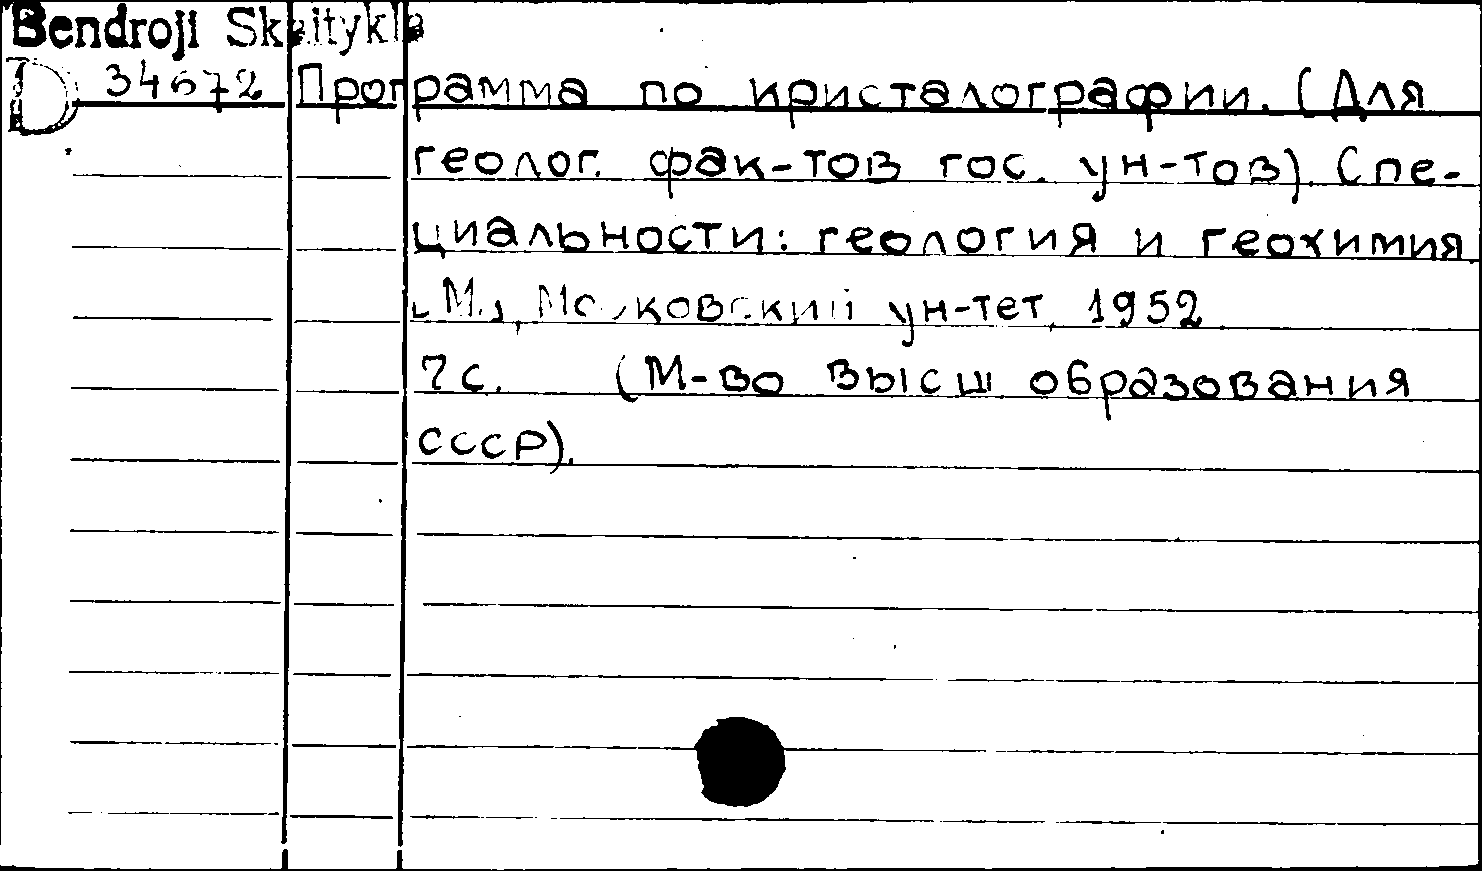 Bendroji Skaitykla
D 34672 Программа по кристалографии. (Для
геолог. фак-тов гос. ун-тов). Спе-
циальности: геология и геохимия.
[М.], Московский ун-тет, 1952.
7 с. (М-во высш. образования
СССР).